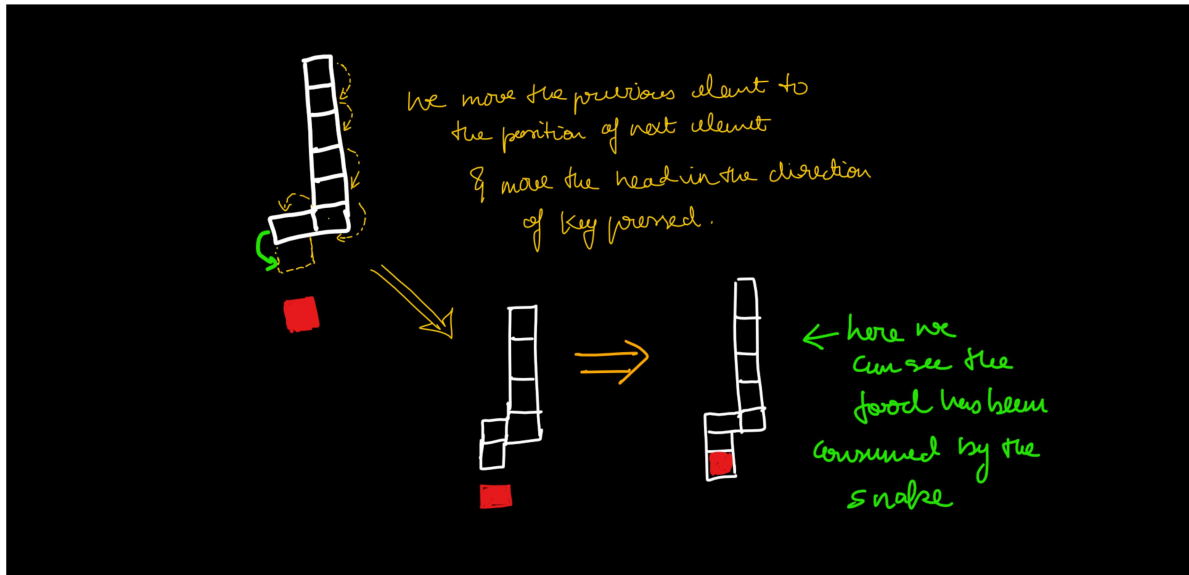 We move the previous elemt to
the position of next elemet
& move the head in the direction
of key pressed.
← here we
can see the
food has been
consumed by the
snake